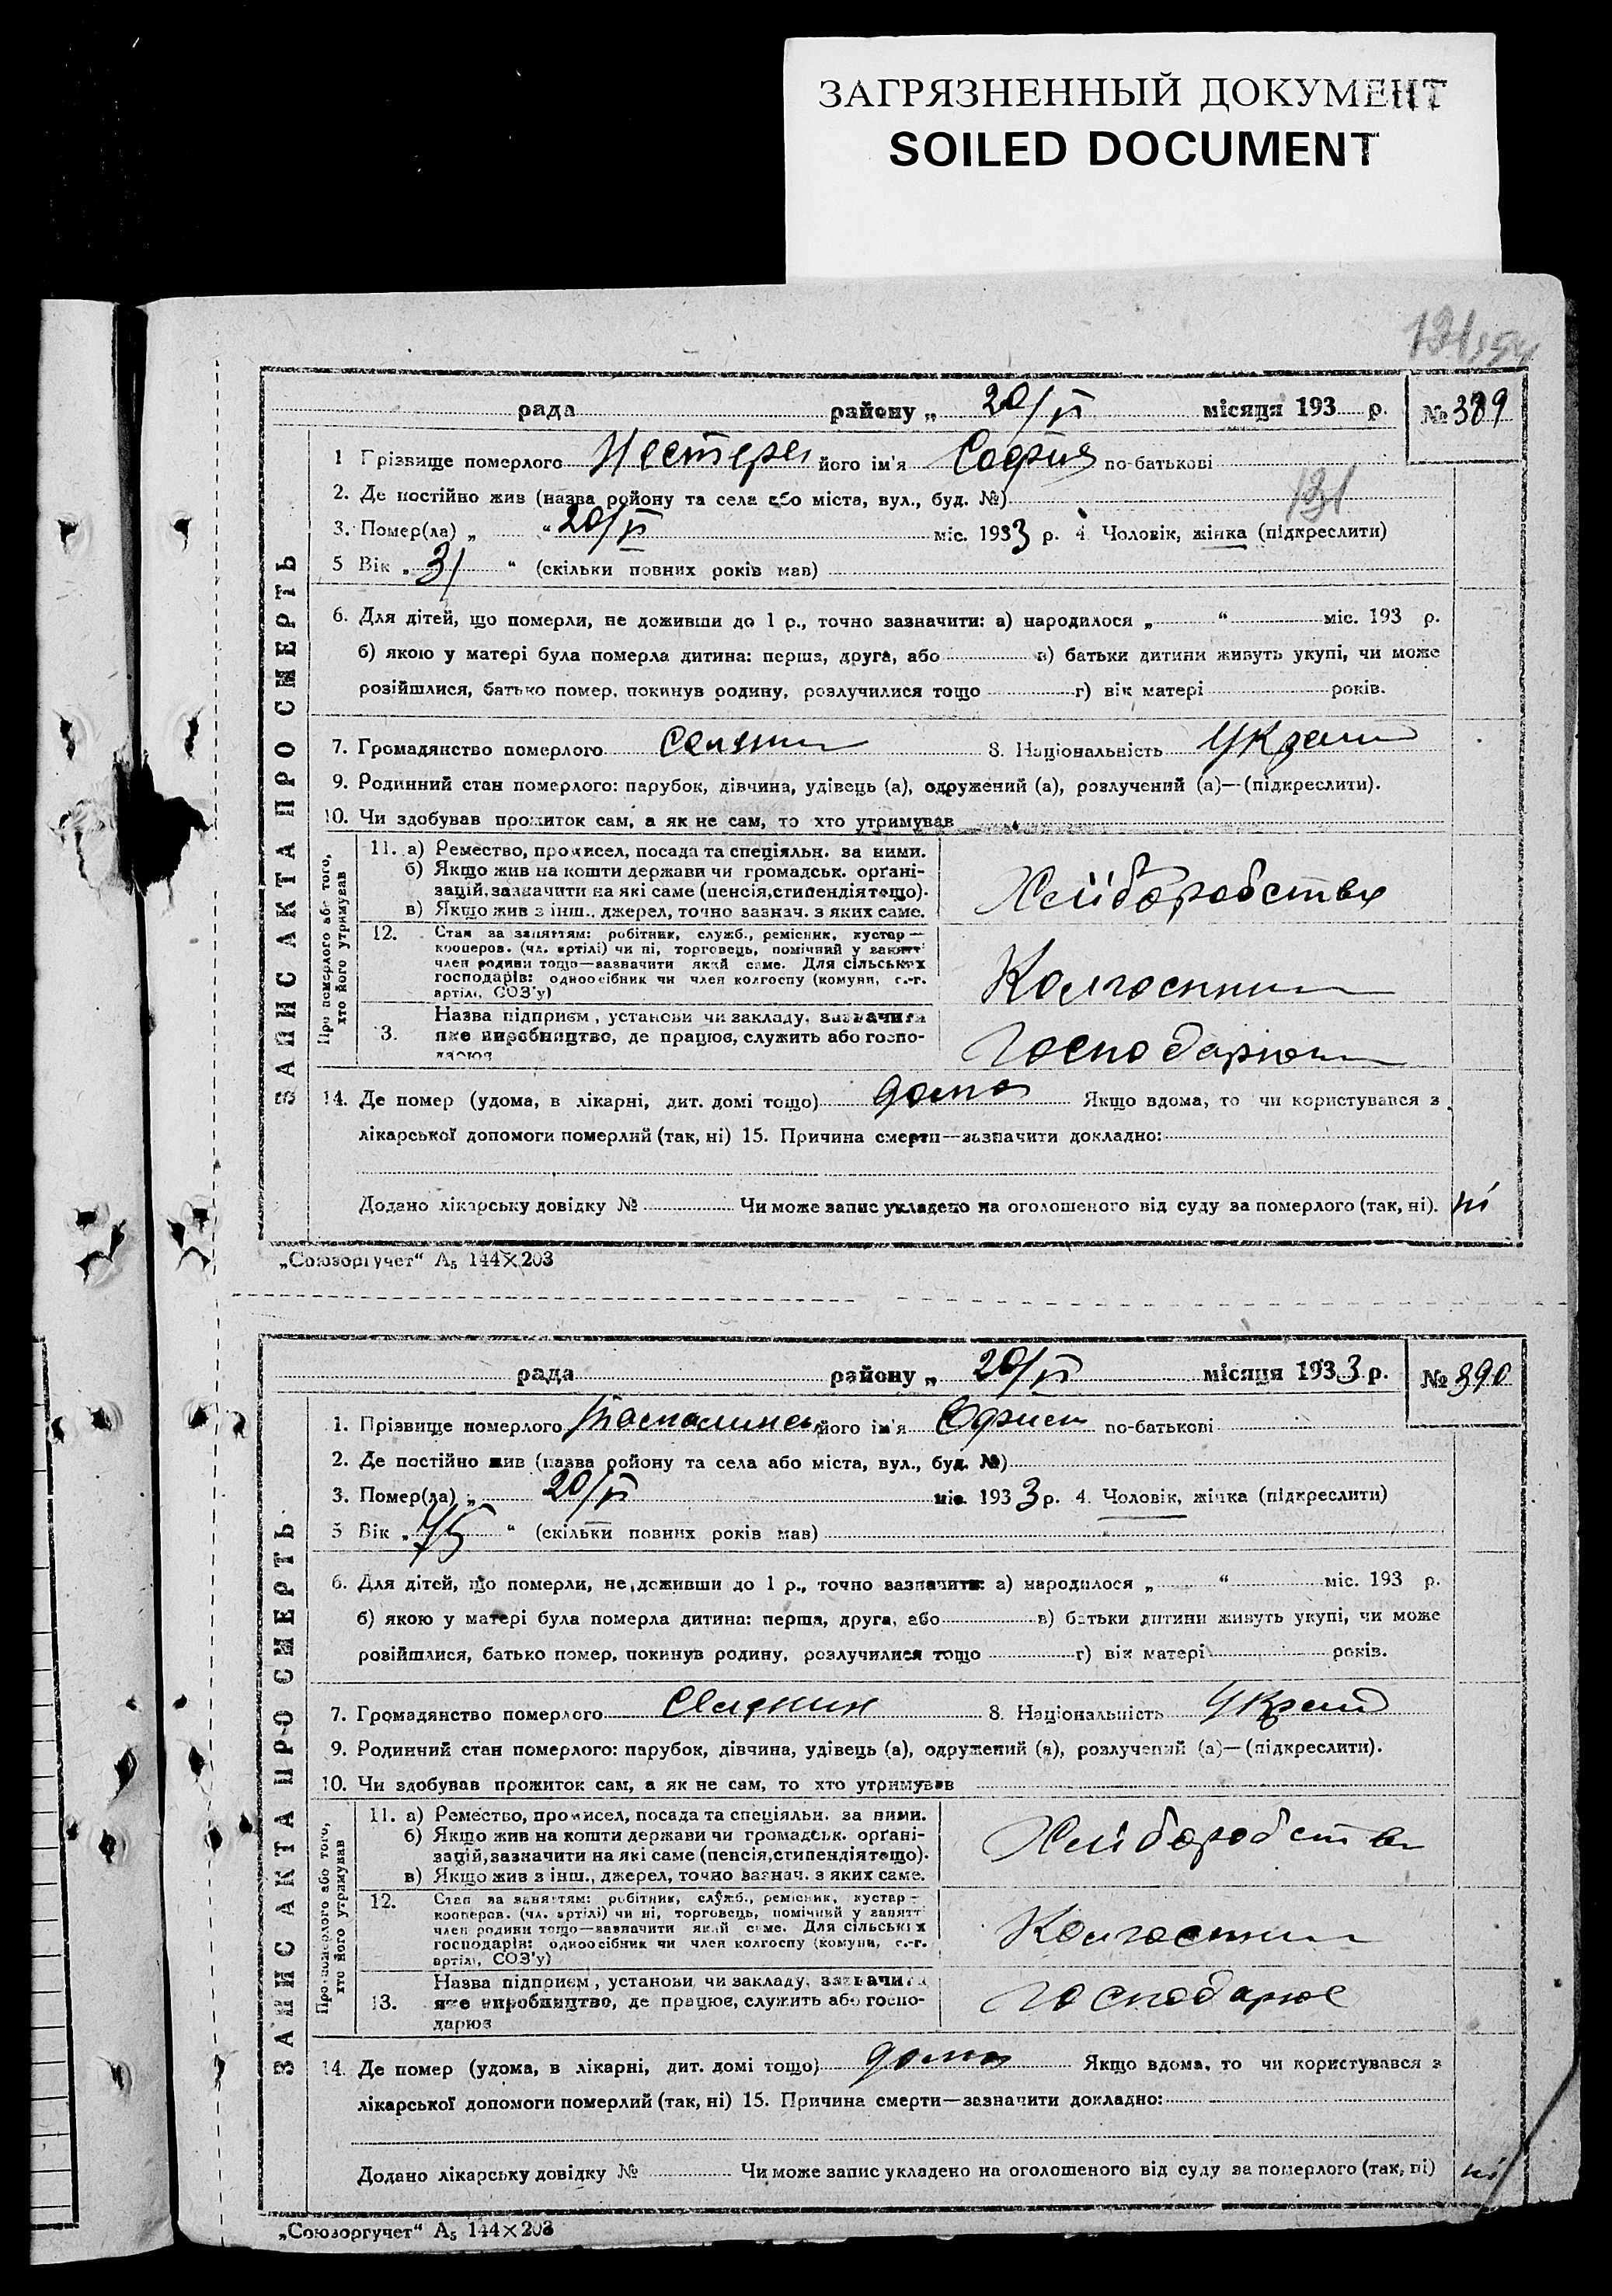 ЗАГРЯЗНЕННЫЙ ДОКУМЕНТ
SOILED DOCUMENT
131
рада району „ 20/VI місяця 193 р. № 389
1 Прізвище померлого його ім'я София по-батькові
131
2. Де постійно жив (назва ройону та села або міста, вул., буд. №)
3. Помер(ла) „ “ 20/VI міс. 1933 р. 4. Чоловік, жінка (підкреслити)
5 Вік „ 31 “ (скільки повних років мав)
6. Для дітей, що померли, не доживши до 1 р., точно зазначити: а) народилося „ “ міс. 193 р.
б) якою у матері була померла дитина: перша, друга, або в) батьки дитини живуть укупі, чи може
розійшлися, батько помер, покинув родину, розлучилися тощо г) вік матері років.
7. Громадянство померлого селянин 8. Національність Украін
9. Родинний стан померлого: парубок, дівчина, удівець (а), одружений (а), розлучений (а)—(підкреслити).
10. Чи здобував прожиток сам, а як не сам, то хто утримував
ЗАПИС АКТА ПРО СМЕРТЬ
Про померлого або того,
хто його утримував
11. а) Ремество, промисел, посада та спеціяльн. за ними.
б) Якщо жив на кошти держави чи громадськ. орґані-
зацій, зазначити на які саме (пенсія, стипендія тощо).
в) Якщо жив з інш., джерел, точно зазнач. з яких саме.
Хліборобство
12. Стан за заняттям: робітник, служб., ремісник, кустар—
кооперов. (чл. артілі) чи ні, торговець, помічний у занятт
член родини тощо—зазначити який саме. Для сільських
господарів: одноосібник чи член колгоспу (комуни, с.-г.
артілі, СОЗ'у)
Колгоспник
13. Назва підприєм, установи чи закладу, зазначити
яке виробництво, де працює, служить або госпо-
дарює
14. Де помер (удома, в лікарні, дит. домі тощо) дома Якщо вдома, то чи користувався з
лікарської допомоги померлий (так, ні) 15. Причина смерти—зазначити докладно:
Додано лікарську довідку № Чи може запис укладено на оголошеного від суду за померлого (так, ні). ні
„Союзоргучет“ А5 144×203
рада району „ 20/VI місяця 1933 р. № 390
1. Прізвище померлого його ім'я по-батькові
2. Де постійно жив (назва ройону та села або міста, вул., буд. №)
3. Помер(ла) „ 20/VI міс. 1933 р. 4. Чоловік, жінка (підкреслити)
5 Вік „ 75 “ (скільки повних років мав)
6. Для дітей, що померли, не доживши до 1 р., точно зазначити: а) народилося „ “ міс. 193 р.
б) якою у матері була померла дитина: перша, друга, або в) батьки дитини живуть укупі, чи може
розійшлися, батько помер, покинув родину, розлучилися тощо г) вік матері років.
7. Громадянство померлого селянин 8. Національність Украін
9. Родинний стан померлого: парубок, дівчина, удівець (а), одружений (а), розлучений (а)—(підкреслити).
10. Чи здобував прожиток сам, а як не сам, то хто утримував
ЗАПИС АКТА ПРО СМЕРТЬ
Про померлого або того,
хто його утримував
11. а) Ремество, промисел, посада та спеціяльн. за ними.
б) Якщо жив на кошти держави чи громадськ. орґані-
зацій, зазначити на які саме (пенсія, стипендія тощо).
в) Якщо жив з інш., джерел, точно зазнач. з яких саме.
Хліборобство
12. Стан за заняттям: робітник, служб., ремісник, кустар—
кооперов. (чл. артілі) чи ні, торговець, помічний у занятт
член родини тощо—зазначити який саме. Для сільських
господарів: одноосібник чи член колгоспу (комуни, с.-г.
артілі, СОЗ'у)
Колгоспник
13. Назва підприєм, установи, чи закладу, зазначити
яке виробництво, де працює, служить або госпо-
дарює
господарює
14. Де помер (удома, в лікарні, дит. домі тощо) дома Якщо вдома, то чи користувався з
лікарської допомоги померлий (так, ні) 15. Причина смерти—зазначити докладно:
Додано лікарську довідку № Чи може запис укладено на оголошеного від суду за померлого (так, ні) ні
„Союзоргучет“ А5 144×203